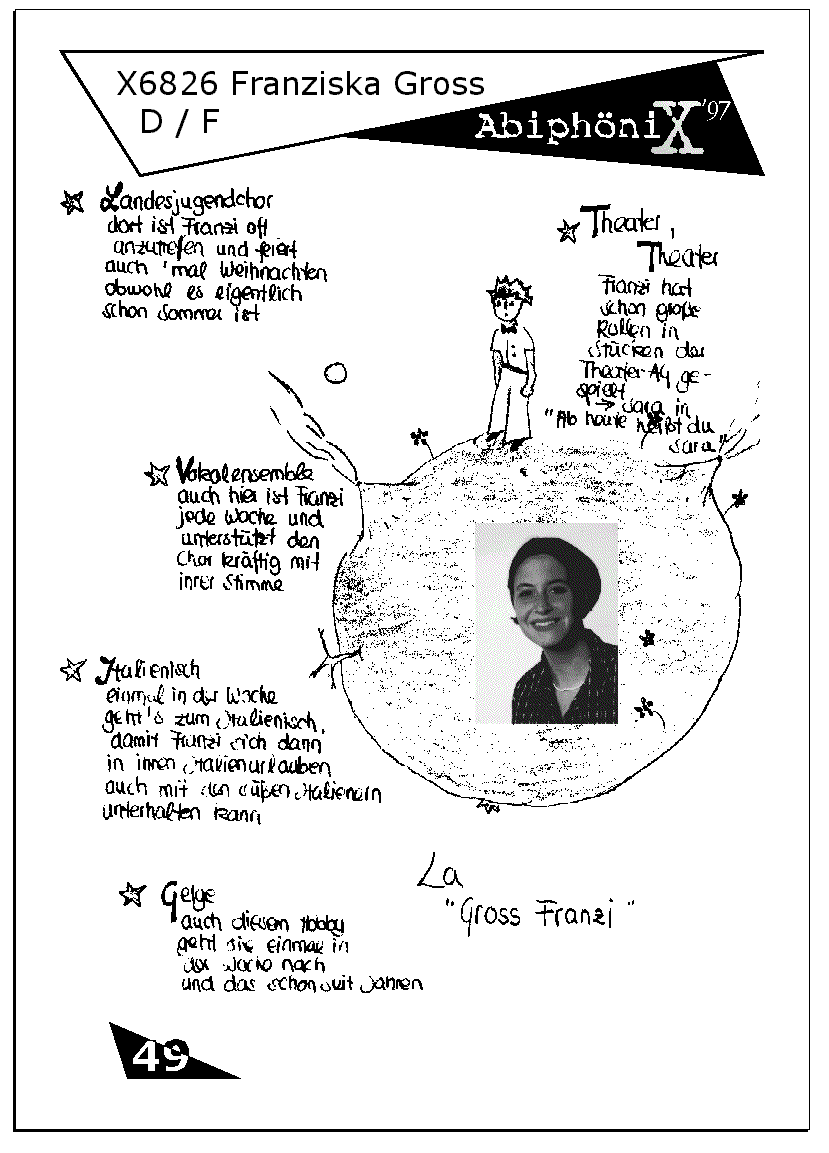 X6826 Franziska Gross
D / F
AbiphöniX '97
Landesjugendchor
dort ist Franzi oft
anzutreffen und feiert
auch 'mal Weihnachten
obwohl es eigentlich
schon Sommer ist
Theater,
Theater
Franzi hat
schon große
Rollen in
Stücken der
Theater-AG ge-
spielt
→ Sara in
"Ab heute heißt du
Sara"
Vokalensemble
auch hier ist Franzi
jede Woche und
unterstützt den
Chor kräftig mit
ihrer Stimme
Italienisch
einmal in der Woche
geht's zum Italienisch,
damit Franzi sich dann
in ihren Italienurlauben
auch mit den süßen Italienern
unterhalten kann
Geige
auch diesem Hobby
geht sie einmal in
der Woche nach
und das schon seit Jahren
La
"Gross Franzi"
49